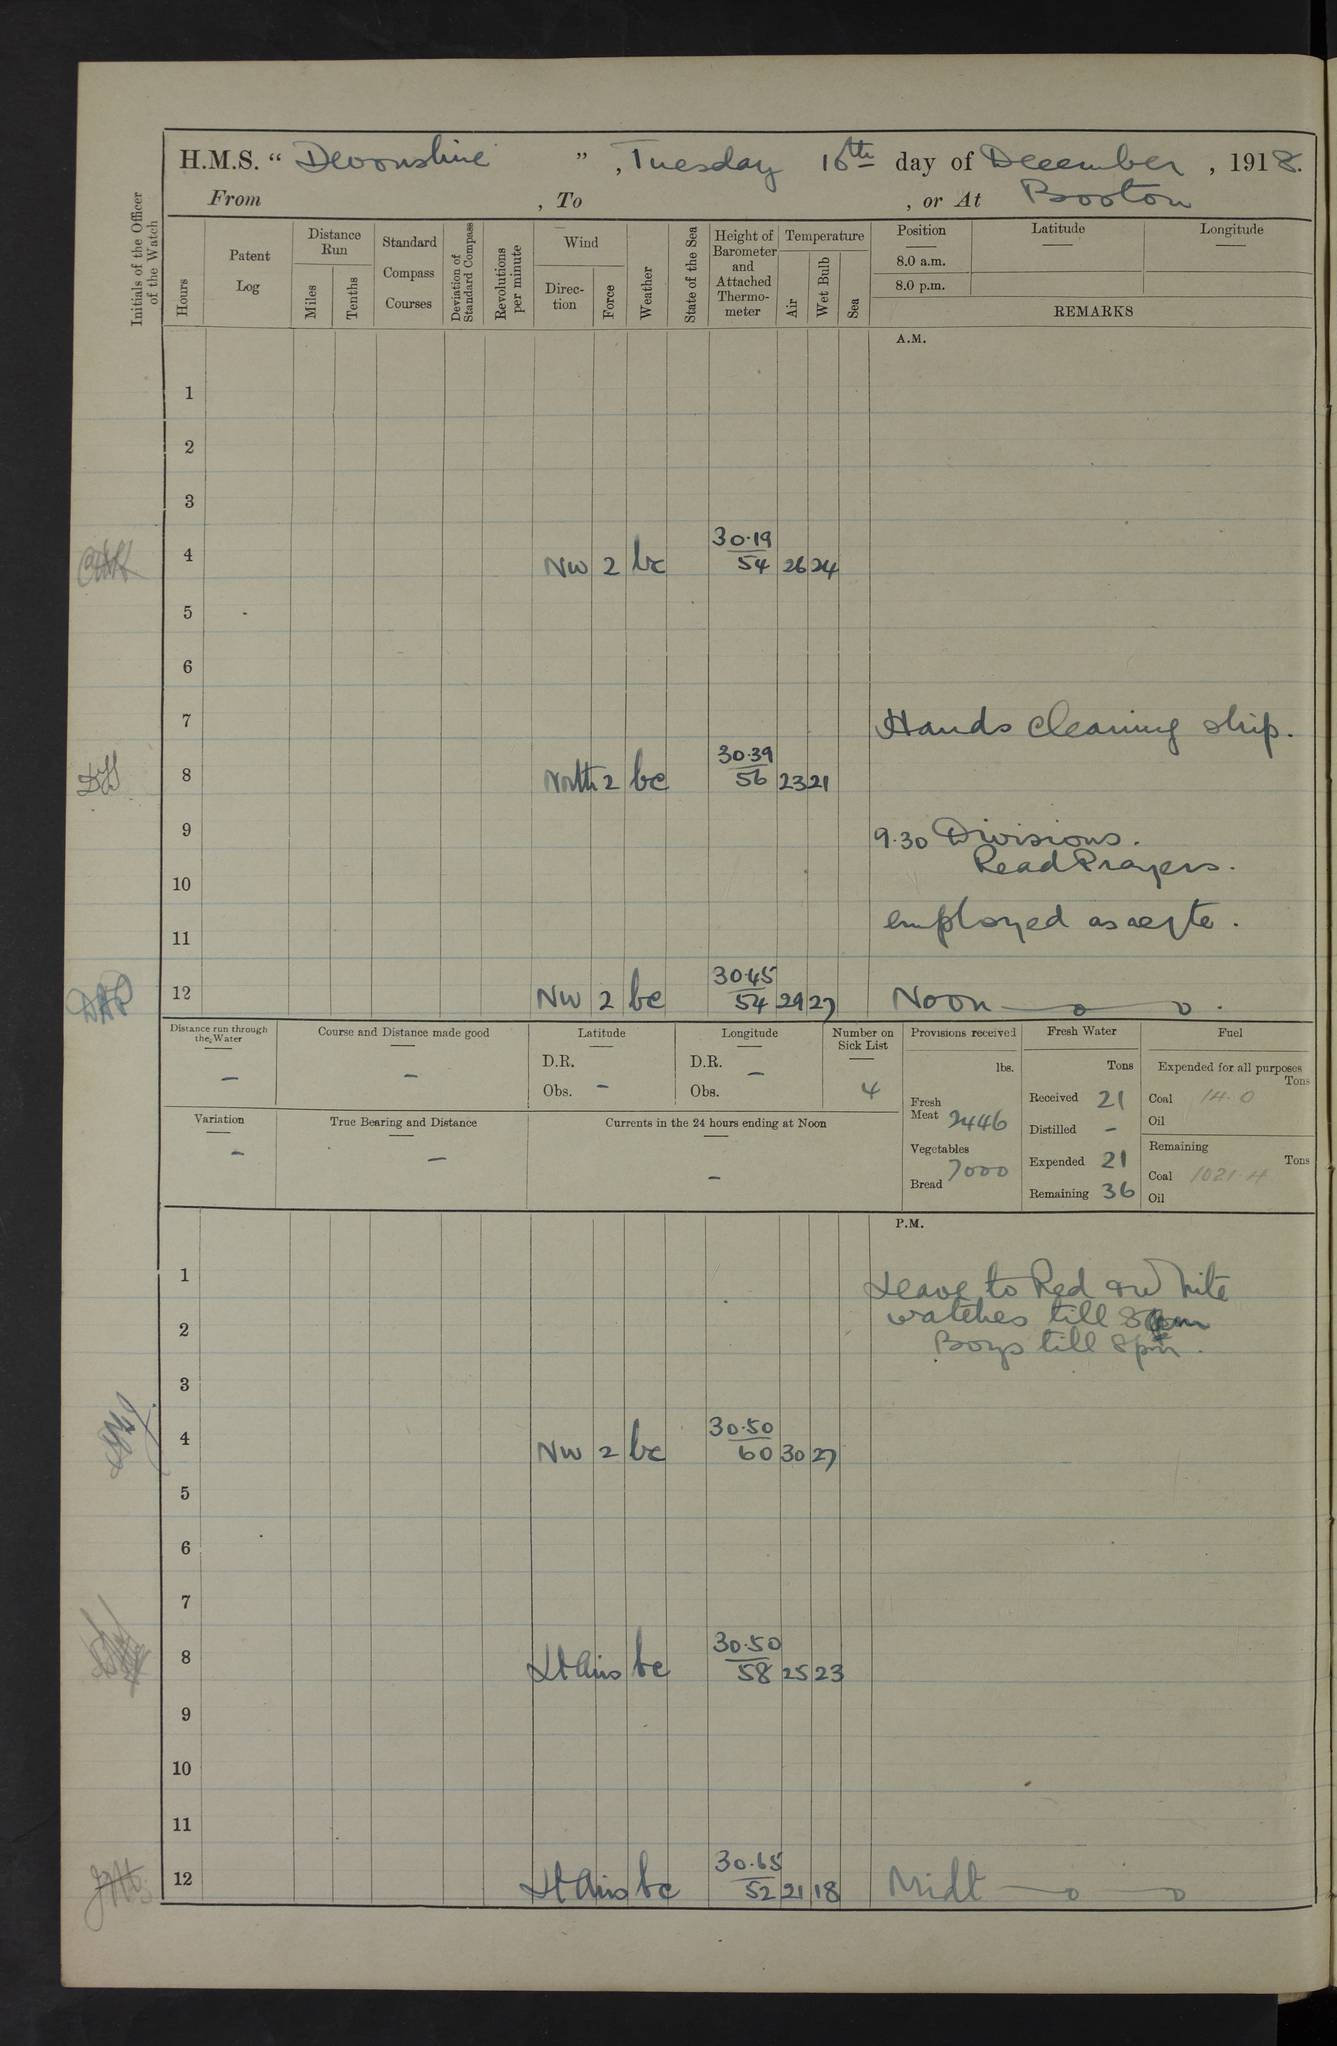 H.M.S. “ Devonshire ”, Tuesday 16th day of December, 1918.
From , To , or At Boston
Initials of the Officer of the Watch
Hours
Patent Log
Distance Run
Miles
Tenths
Standard Compass Courses
Deviation of Standard Compass
Revolutions per minute
Wind
Direction
Force
Weather
State of the Sea
Height of Barometer and Attached Thermometer
Temperature
Air
Wet Bulb
Sea
Position
Latitude
Longitude
8.0 a.m.
8.0 p.m.
REMARKS
A.M.
1
2
3
30.19
4 NW 2 bc 54 26 24
5
6
7 Hands cleaning ship.
30.39
8 North 2 bc 56 23 21
9 9.30 Divisions.
Read Prayers.
10
employed as reqte.
11
30.45
12 NW 2 bc 54 29 27 Noon
Distance run through the Water
–
Course and Distance made good
–
Latitude
D.R.
Obs. –
Longitude
D.R. –
Obs.
Number on Sick List
4
Variation
–
True Bearing and Distance
–
Currents in the 24 hours ending at Noon
–
Provisions received
lbs.
Fresh Meat 2446
Vegetables
7000
Bread
Fresh Water
Tons
Received 21
Distilled –
Expended 21
Remaining 36
Fuel
Expended for all purposes
Tons
Coal 14.0
Oil
Remaining
Tons
Coal 1021.4
Oil
P.M.
1 Leave to Red & White
watches till 8am
2 Boys till 8pm.
3
30.50
4 NW 2 bc 60 30 27
5
6
7
30.50
8 Lt Airs bc 58 25 23
9
10
11
30.65
12 Lt Airs bc 52 21 18 Midt